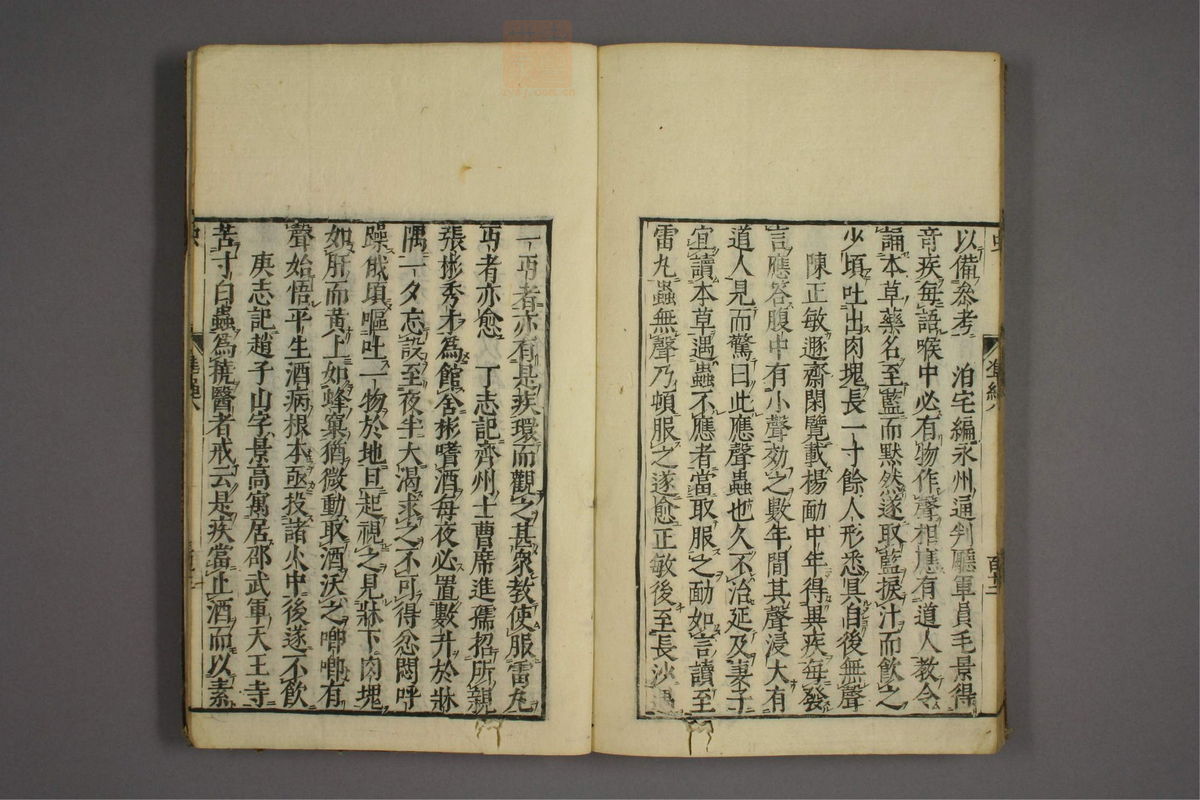 以備參考　泊宅編永州通判廳軍員毛景得
奇疾每語喉中必有物作聲相應有道人教令
誦本草藥名至藍而默然遂取藍捩汁而飲之
少頃吐出肉塊長一寸餘人形悉具自後無聲
陳正敏遯齋閑覽載楊勔中年得異疾每發
言應答腹中有小聲効之數年間其聲浸大有
道人見而驚曰此應聲蟲也久不治延及妻子
宜讀本草遇蟲不應者當取服之勔如言讀至
雷丸蟲無聲乃頓服之遂愈正敏後至長沙遇
一丐者亦有是疾環而觀之甚衆教使服雷丸
丐者亦愈　丁志記齊州士曹席進孺招所親
張彬秀才為館舍彬嗜酒每夜必置數升於牀
隅一夕忘設至夜半大渴求之不可得忿悶呼
躁俄頃嘔吐一物於地旦起視之見牀下肉塊
如肝而黃上如蜂窠猶微動取酒沃之唧唧有
聲始悟平生酒病根本亟投諸火中後遂不飲
庚志記趙子山字景高寓居邵武軍天王寺
苦寸白蟲為撓醫者戒云是疾當止酒而以素